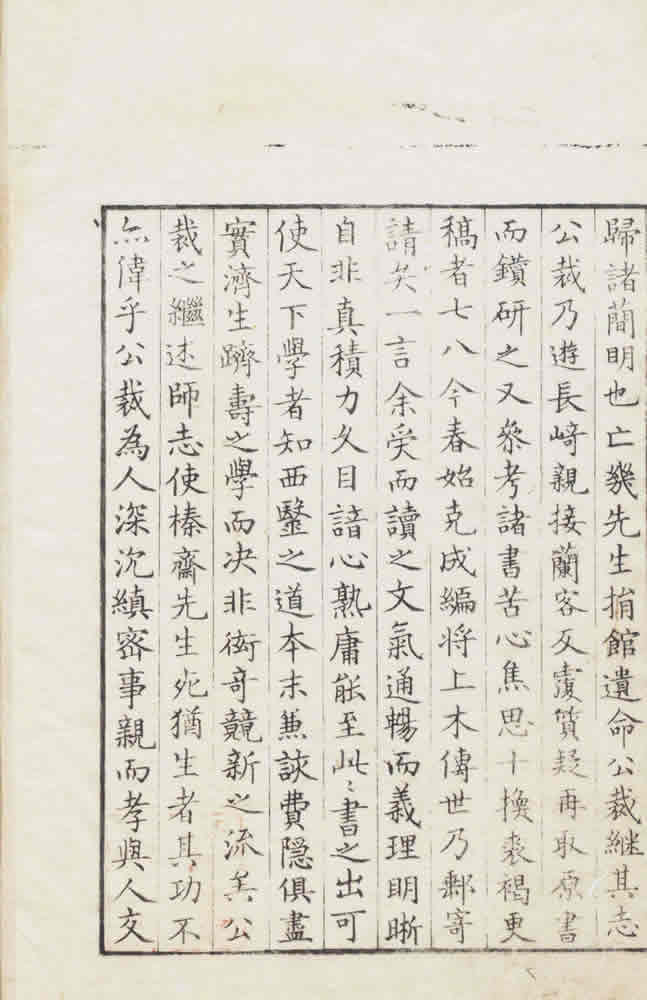 歸諸蕳明也亡幾先生捐館遺命公裁継其志
公裁乃遊長﨑親接蘭客反覆質疑再取原書
而鑚研之又叅考諸書苦心焦思十換裘褐更
稿者七八今春始克成編将上木傳世乃郵寄
請矣一言余受而讀之文氣通暢而義理明晰
自非真積力久目諳心熟庸能至此〻書之出可
使天下學者知西毉之道本末兼該費隠俱盡
實濟生躋壽之學而决非衒竒競新之流矣公
裁之繼述師志使榛齋先生死猶生者其功不
亦偉乎公裁為人深沉縝密事親而孝與人交